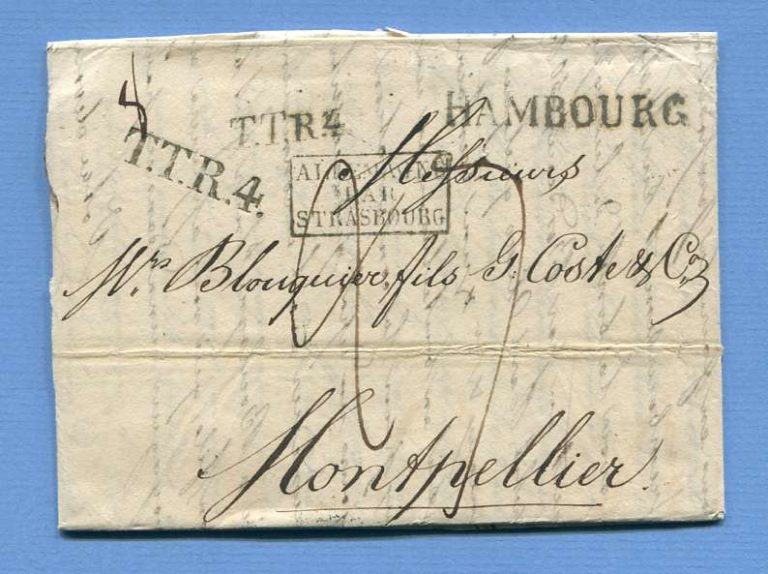 HAMBOURG
T.T.R.4
T.T.R.4.
ALLEMAGNE
PAR
STRASBOURG
Messieurs
Mrs. Blouquier fils G. Coste & Co
Montpellier.